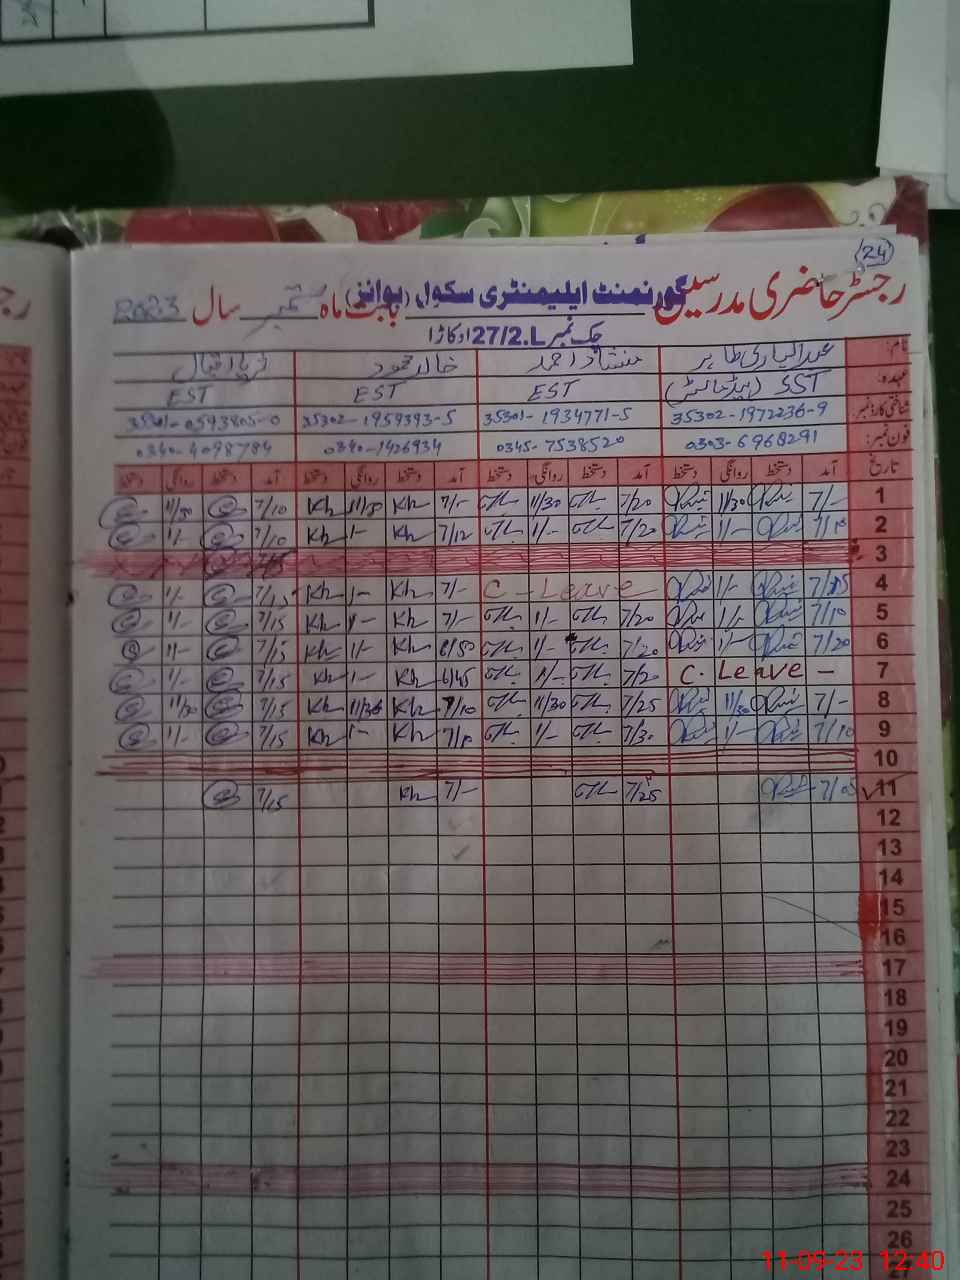 24
رجسٹر حاضری مدرسین گورنمنٹ ایلیمنٹری سکول (بوائز) بابت ماہ ستمبر سال 2023
چک نمبر 27/2.L اوکاڑا
نام: عبدالباری طاہر منشاد احمد خالد محمود
عہدہ: SST (ہیڈ ماسٹر) EST EST EST
شناختی کارڈ نمبر: 35302-1972236-9 35301-1934771-5 35302-1959393-5 35301-0593805-0
فون نمبر: 0303-6968291 0345-7538520 0340-1426934 0340-4098784
تاریخ آمد دستخط روانگی دستخط آمد دستخط روانگی دستخط آمد دستخط روانگی دستخط آمد دستخط روانگی دستخط
1 7/- 11/30 7/20 11/30 7/- Kh 11/30 Kh 7/10 11/30
2 7/10 1/- 7/20 1/- 7/12 Kh 1- Kh 7/10 1/-
3 7/15
4 7/15 1/- C-Leave 7/- Kh 1- Kh 7/15 1/-
5 7/10 1/- 7/20 1/- 7/- Kh 1- Kh 7/15 1/-
6 7/20 1/- 7/20 1/- 6/50 Kh 1- Kh 7/15 1/-
7 C. Leave - 7/20 1/- 6/45 Kh 1- Kh 7/15 1/-
8 7/- 11/30 7/25 11/30 7/10 Kh 11/30 Kh 7/15 11/30
9 7/10 1/- 7/30 1/- 7/10 Kh 1- Kh 7/15 1/-
10
11 7/05 7/25 7/- Kh 7/15
12
13
14
15
16
17
18
19
20
21
22
23
24
25
26
11-09-23 12:40